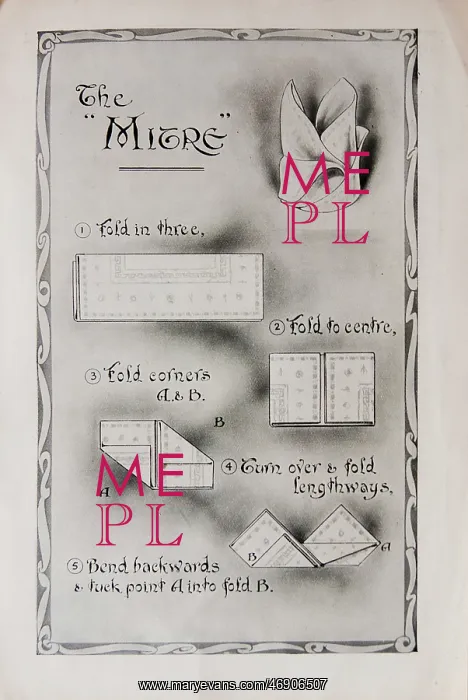 The
"MITRE"
ME
PL
① Fold in three,
② Fold to centre,
③ Fold corners
A. & B.
B
A
ME
PL
④ Turn over & fold
lengthways,
B
A
⑤ Bend backwards
& tuck point A into fold B.
www.maryevans.com/46906507